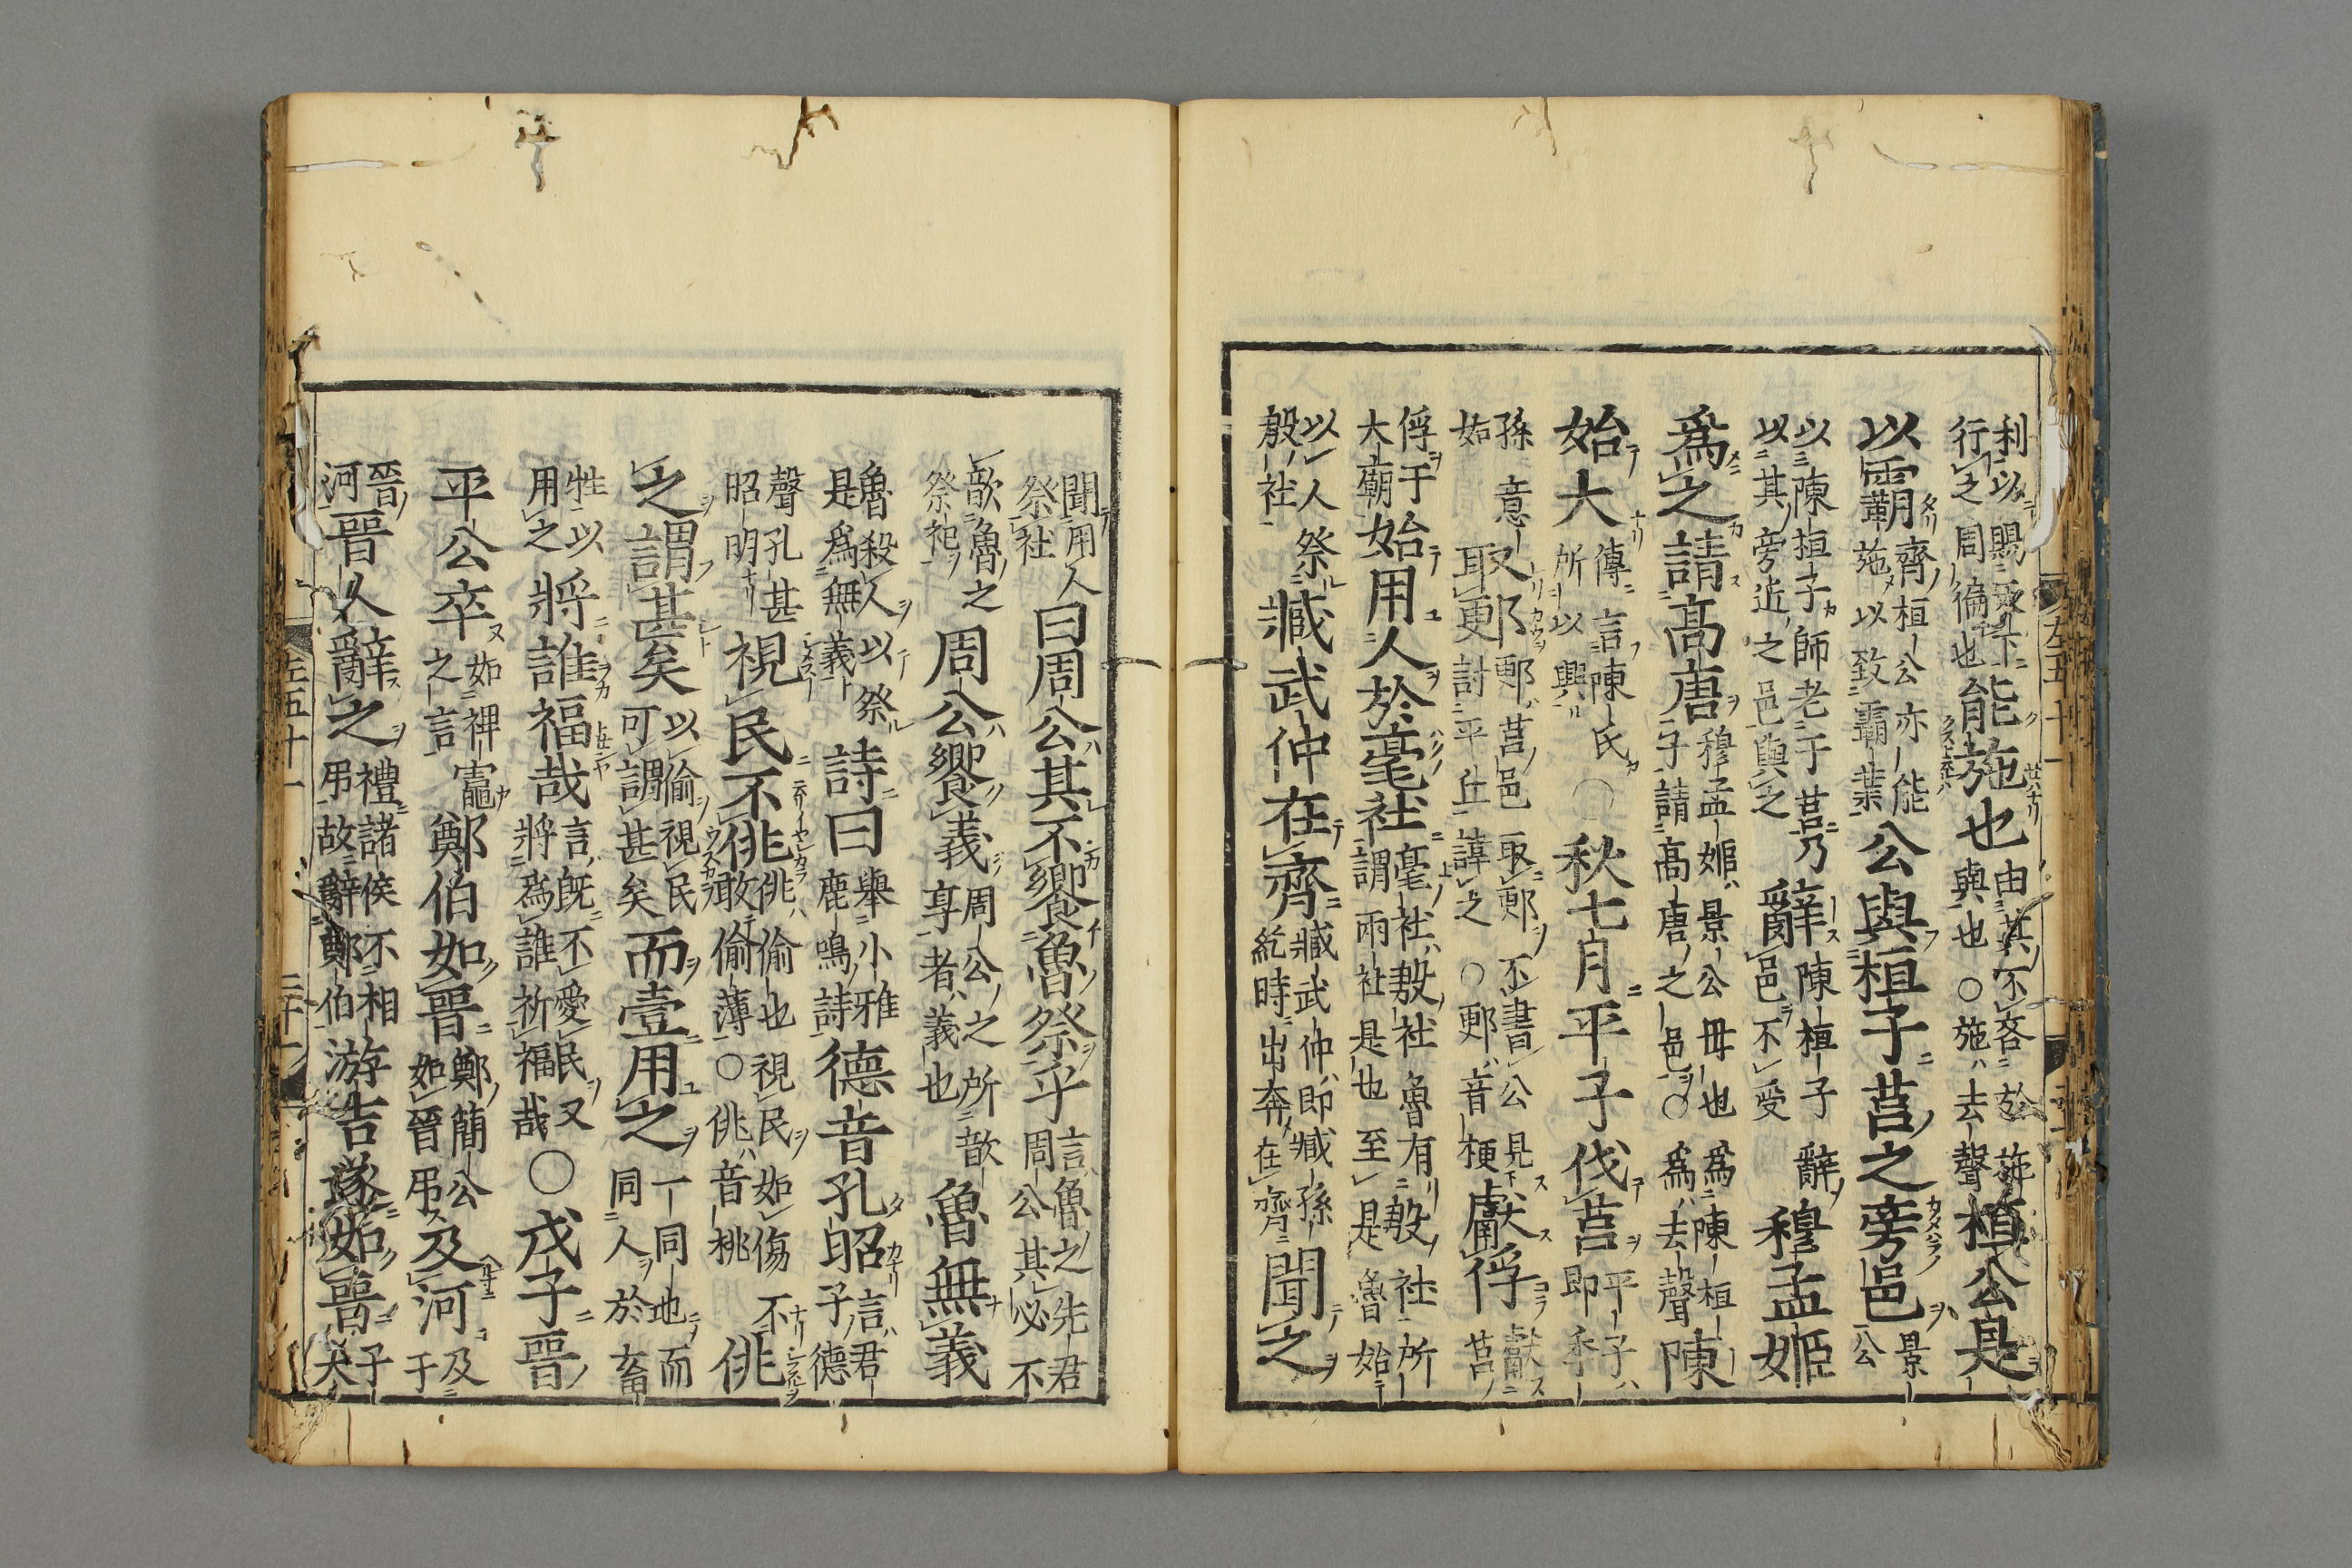 利以賜
行之周徧也
能施也
由其不吝於施
與也○施去聲
桓公是
以霸
齊桓公亦能
施以致霸業
公與桓子莒之旁邑
景
公
以陳桓子師老于莒乃
以其旁近之邑與之
辭
陳桓子辭
邑不受
穆孟姬
爲之請高唐
穆孟姬景公毋也爲陳桓
子請高唐之邑○爲去聲
陳
始大
傳言陳氏
所以興
○秋七月平子伐莒
平子
即季
孫意
如
取郠
郠莒邑取郠不書公見
討平丘諱之○郠音梗
獻俘
獻
莒
俘于
大廟
始用人於亳社
亳社殷社魯有殷社所
謂兩社是也至是魯始
以人祭
殷社
臧武仲在齊
臧武仲即臧孫
紇時出奔在齊
聞之
聞用人
祭社
曰周公其不饗魯祭乎
言魯之先君
周公其必不
歆魯之
祭祀
周公饗義
周公之所歆
享者義也
魯無義
魯殺人以祭
是爲無義
詩曰
舉小雅
鹿鳴詩
德音孔昭
言君
子德
聲孔甚
昭明
視民不佻
佻偷也視民如傷不
敢偷薄○佻音桃
佻
之謂甚矣
以偷視民
可謂甚矣
而壹用之
一同也而
同人於畜
牲以
用之
將誰福哉
言既不愛民又
將爲誰祈福哉
○戊子晉
平公卒
如裨竈
之言
鄭伯如晉
鄭簡公
如晉弔
及河
及
于
晉
河
晉人辭之
禮諸侯不相
弔故辭鄭伯
游吉遂如晉
子
大
左五十一